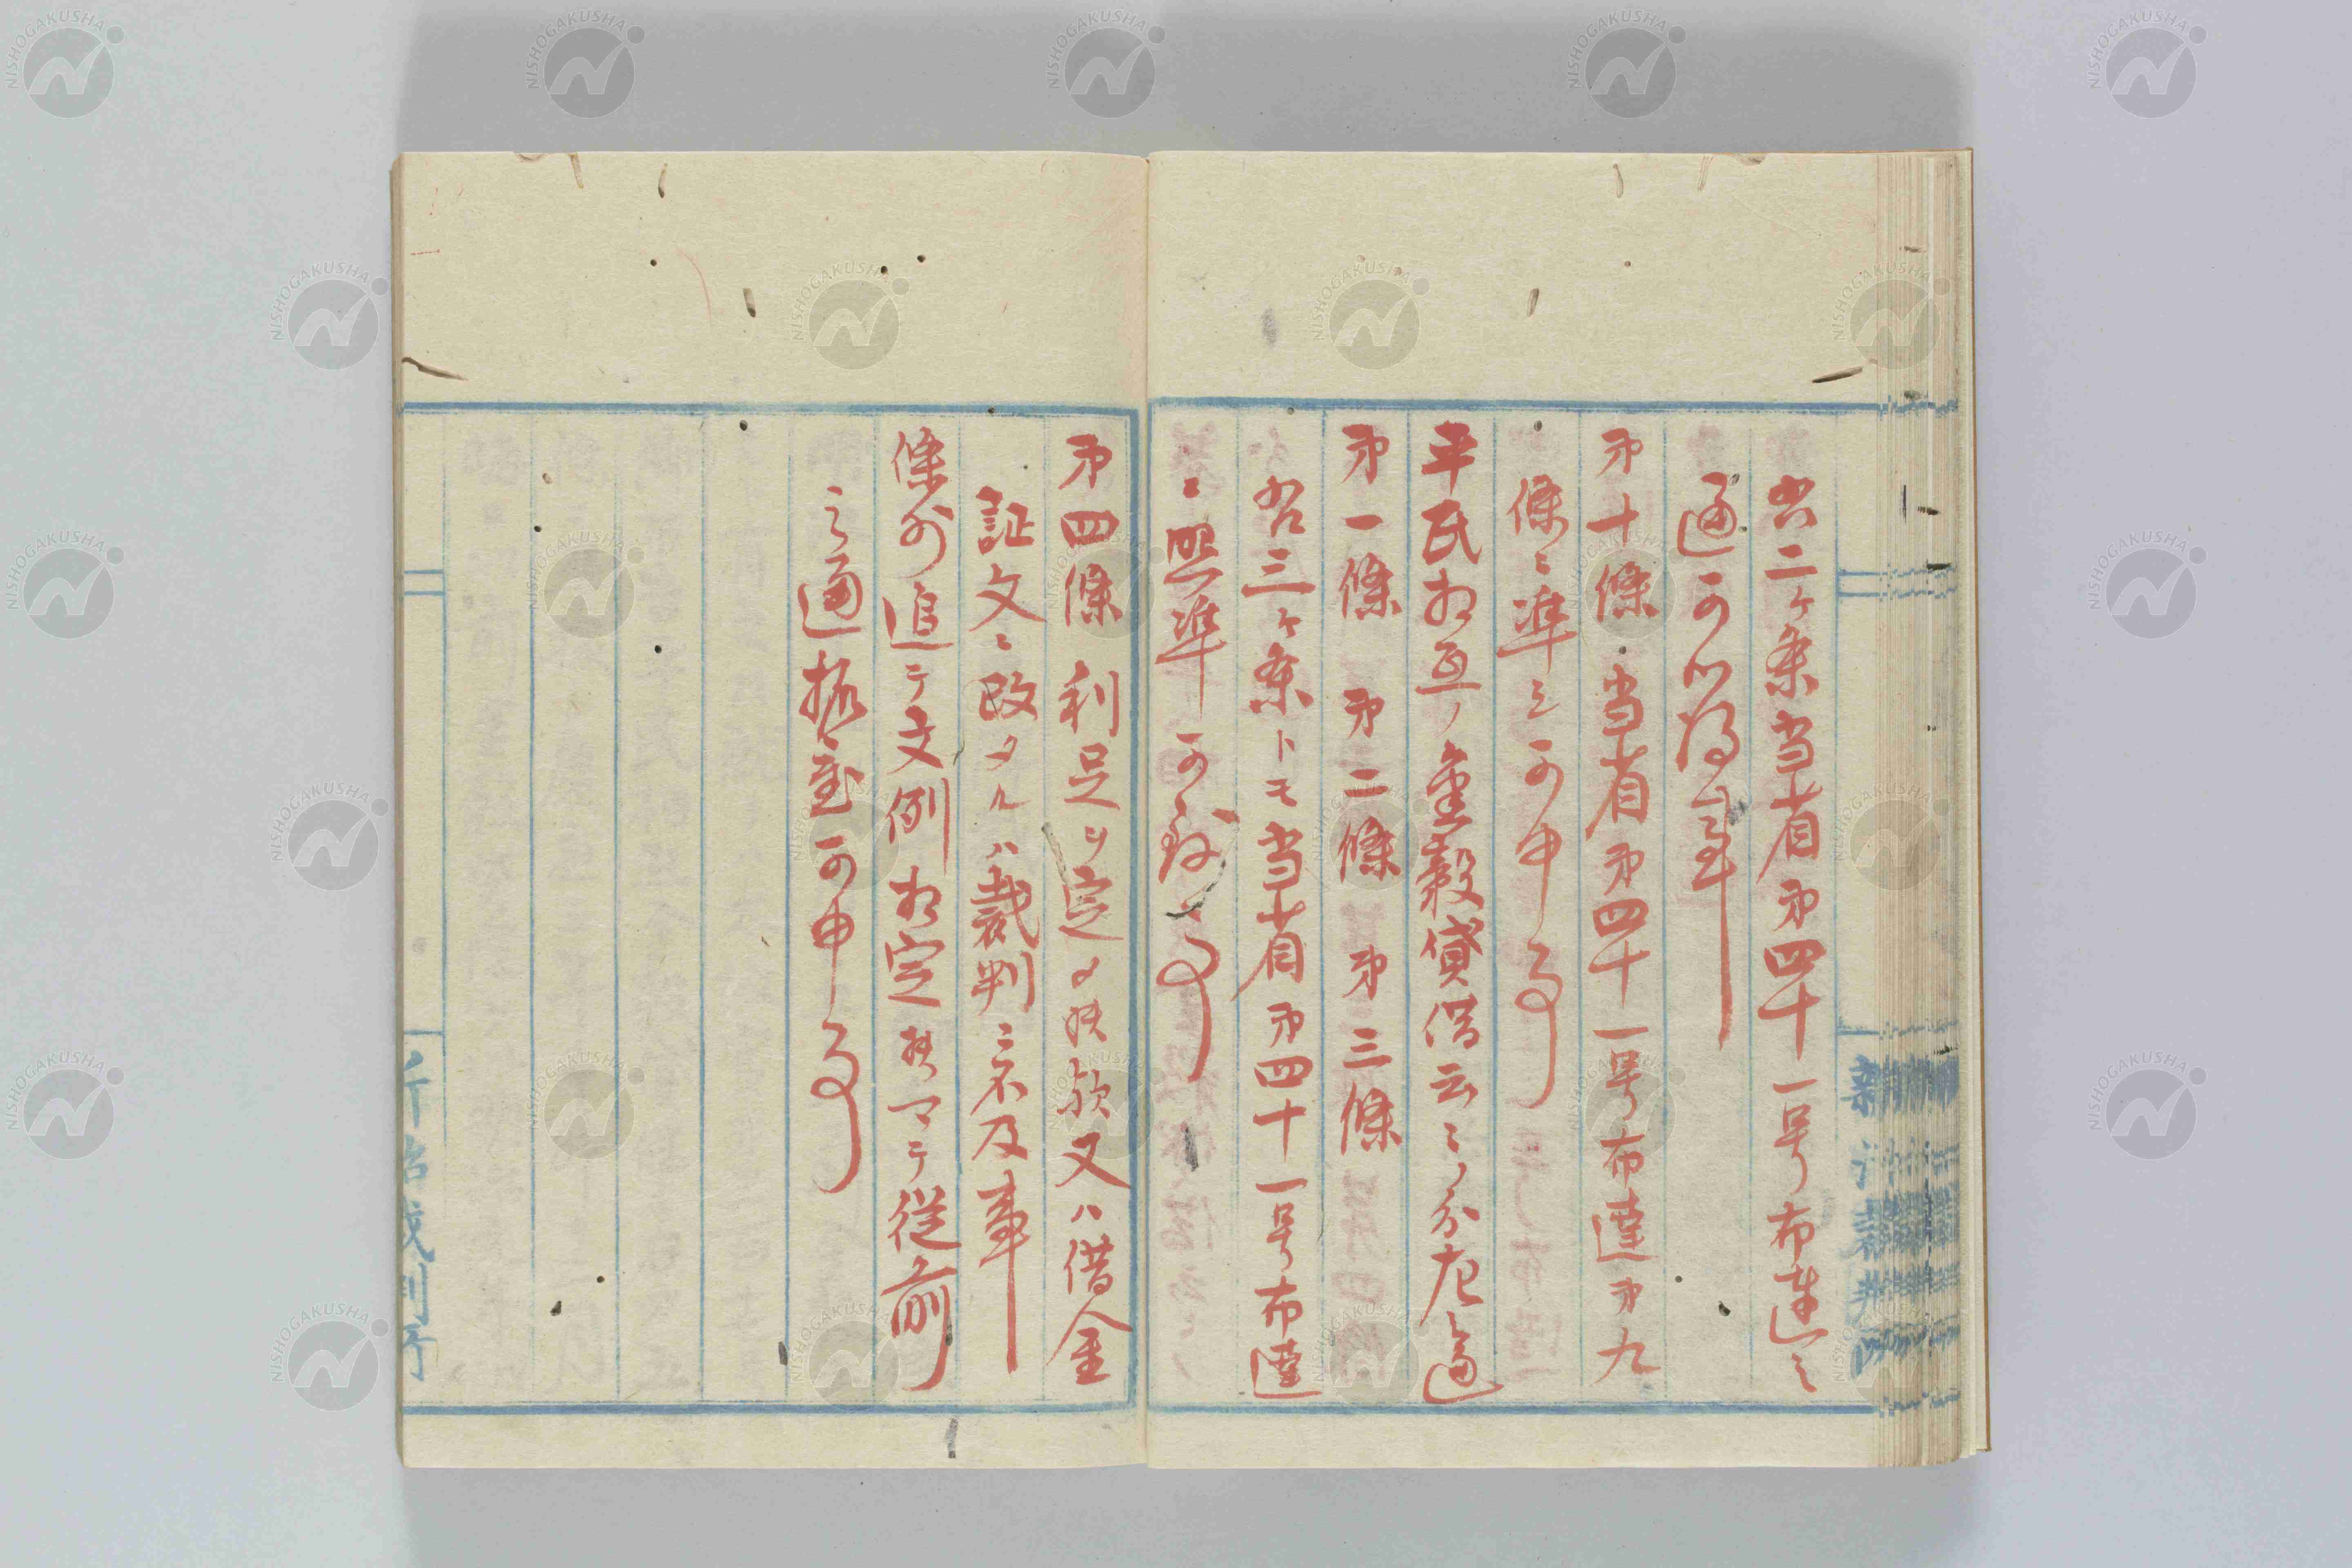 右二ヶ条当省第四十一号布達之
通可心得事
第十條 当省第四十一号布達第九
條ニ準シ可申事
平民相互ノ金穀貸借云々ノ分左之通
第一條 第二條 第三條
右三ヶ条トモ当省第四十一号布達
ニ照準可致事
第四條 利足ヲ定メサル歟又ハ借金
証文ニ改タルハ裁判ニ不及事
條外追テ文例相定候マテ従前
之通据置可申事
NISHOGAKUSHA